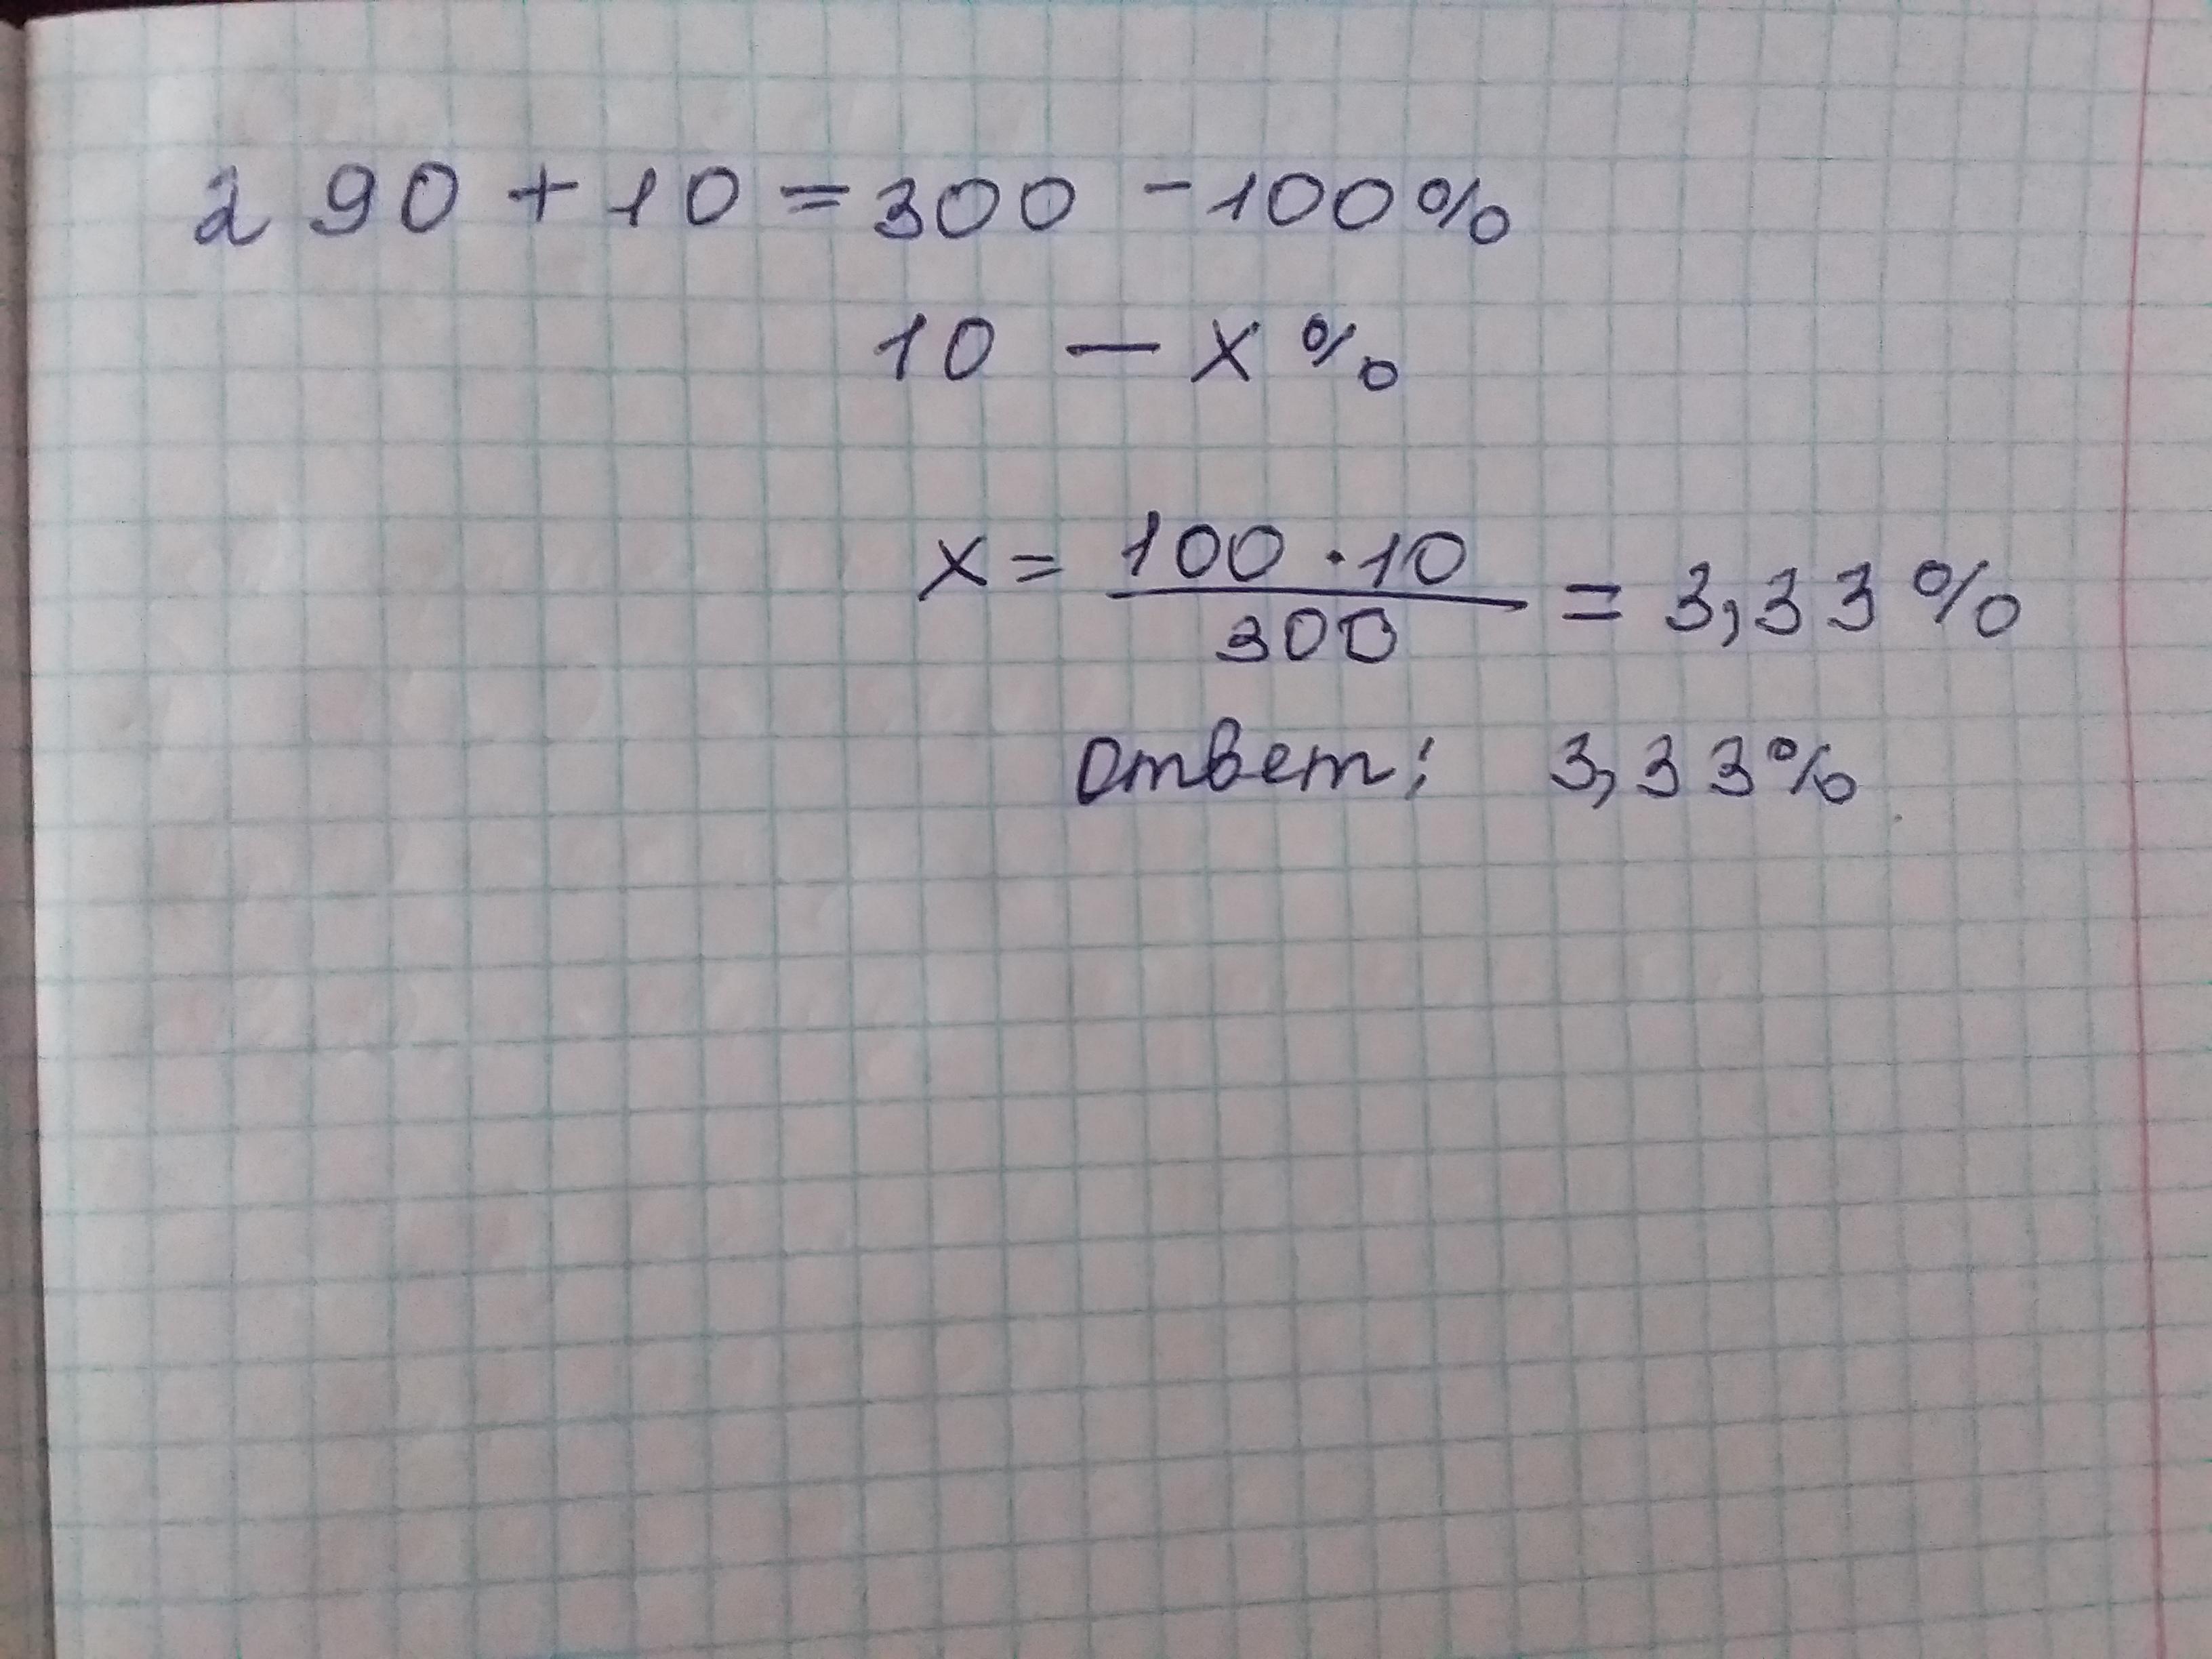 290 + 10 = 300 - 100%
10 — x %
x = 100 · 10 / 300 = 3,33 %
Ответ: 3,33%